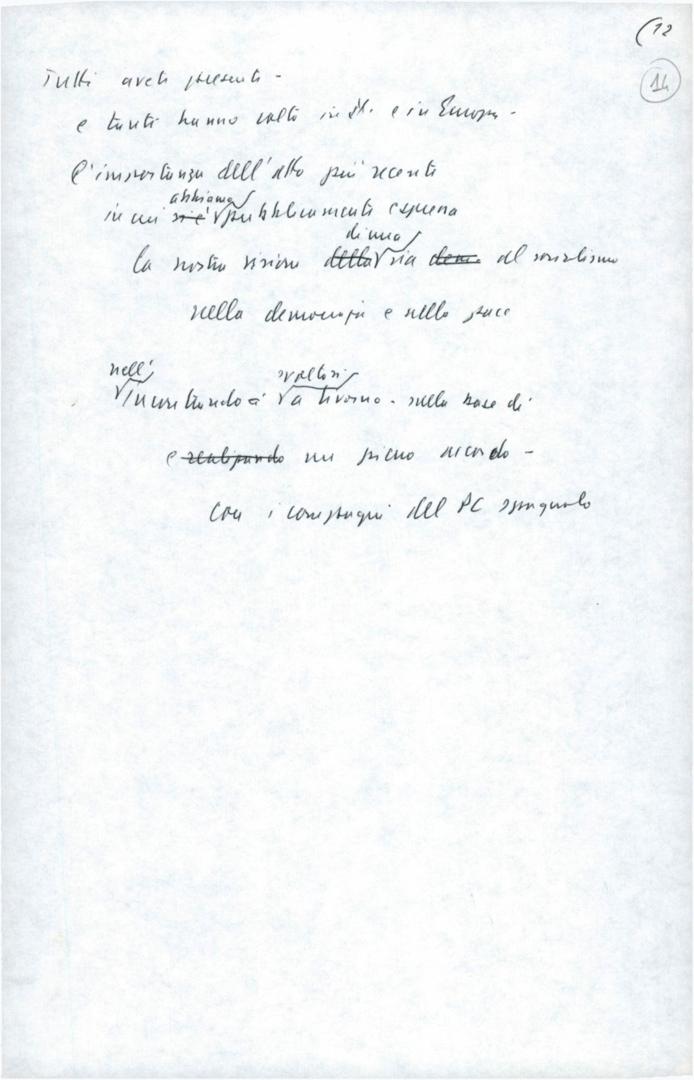 (12
14
Tutti avete presente -
e tanti hanno colto in It. e in Europa -
l'importanza dell'atto più recente
abbiamo
in cui si è pubblicamente espressa
di una
la nostra visione della via dem. al socialismo
nella democrazia e nella pace
nell' svoltosi
Incontrandoci a Livorno - sulla base di
e realizzando un pieno accordo -
con i compagni del PC spagnolo